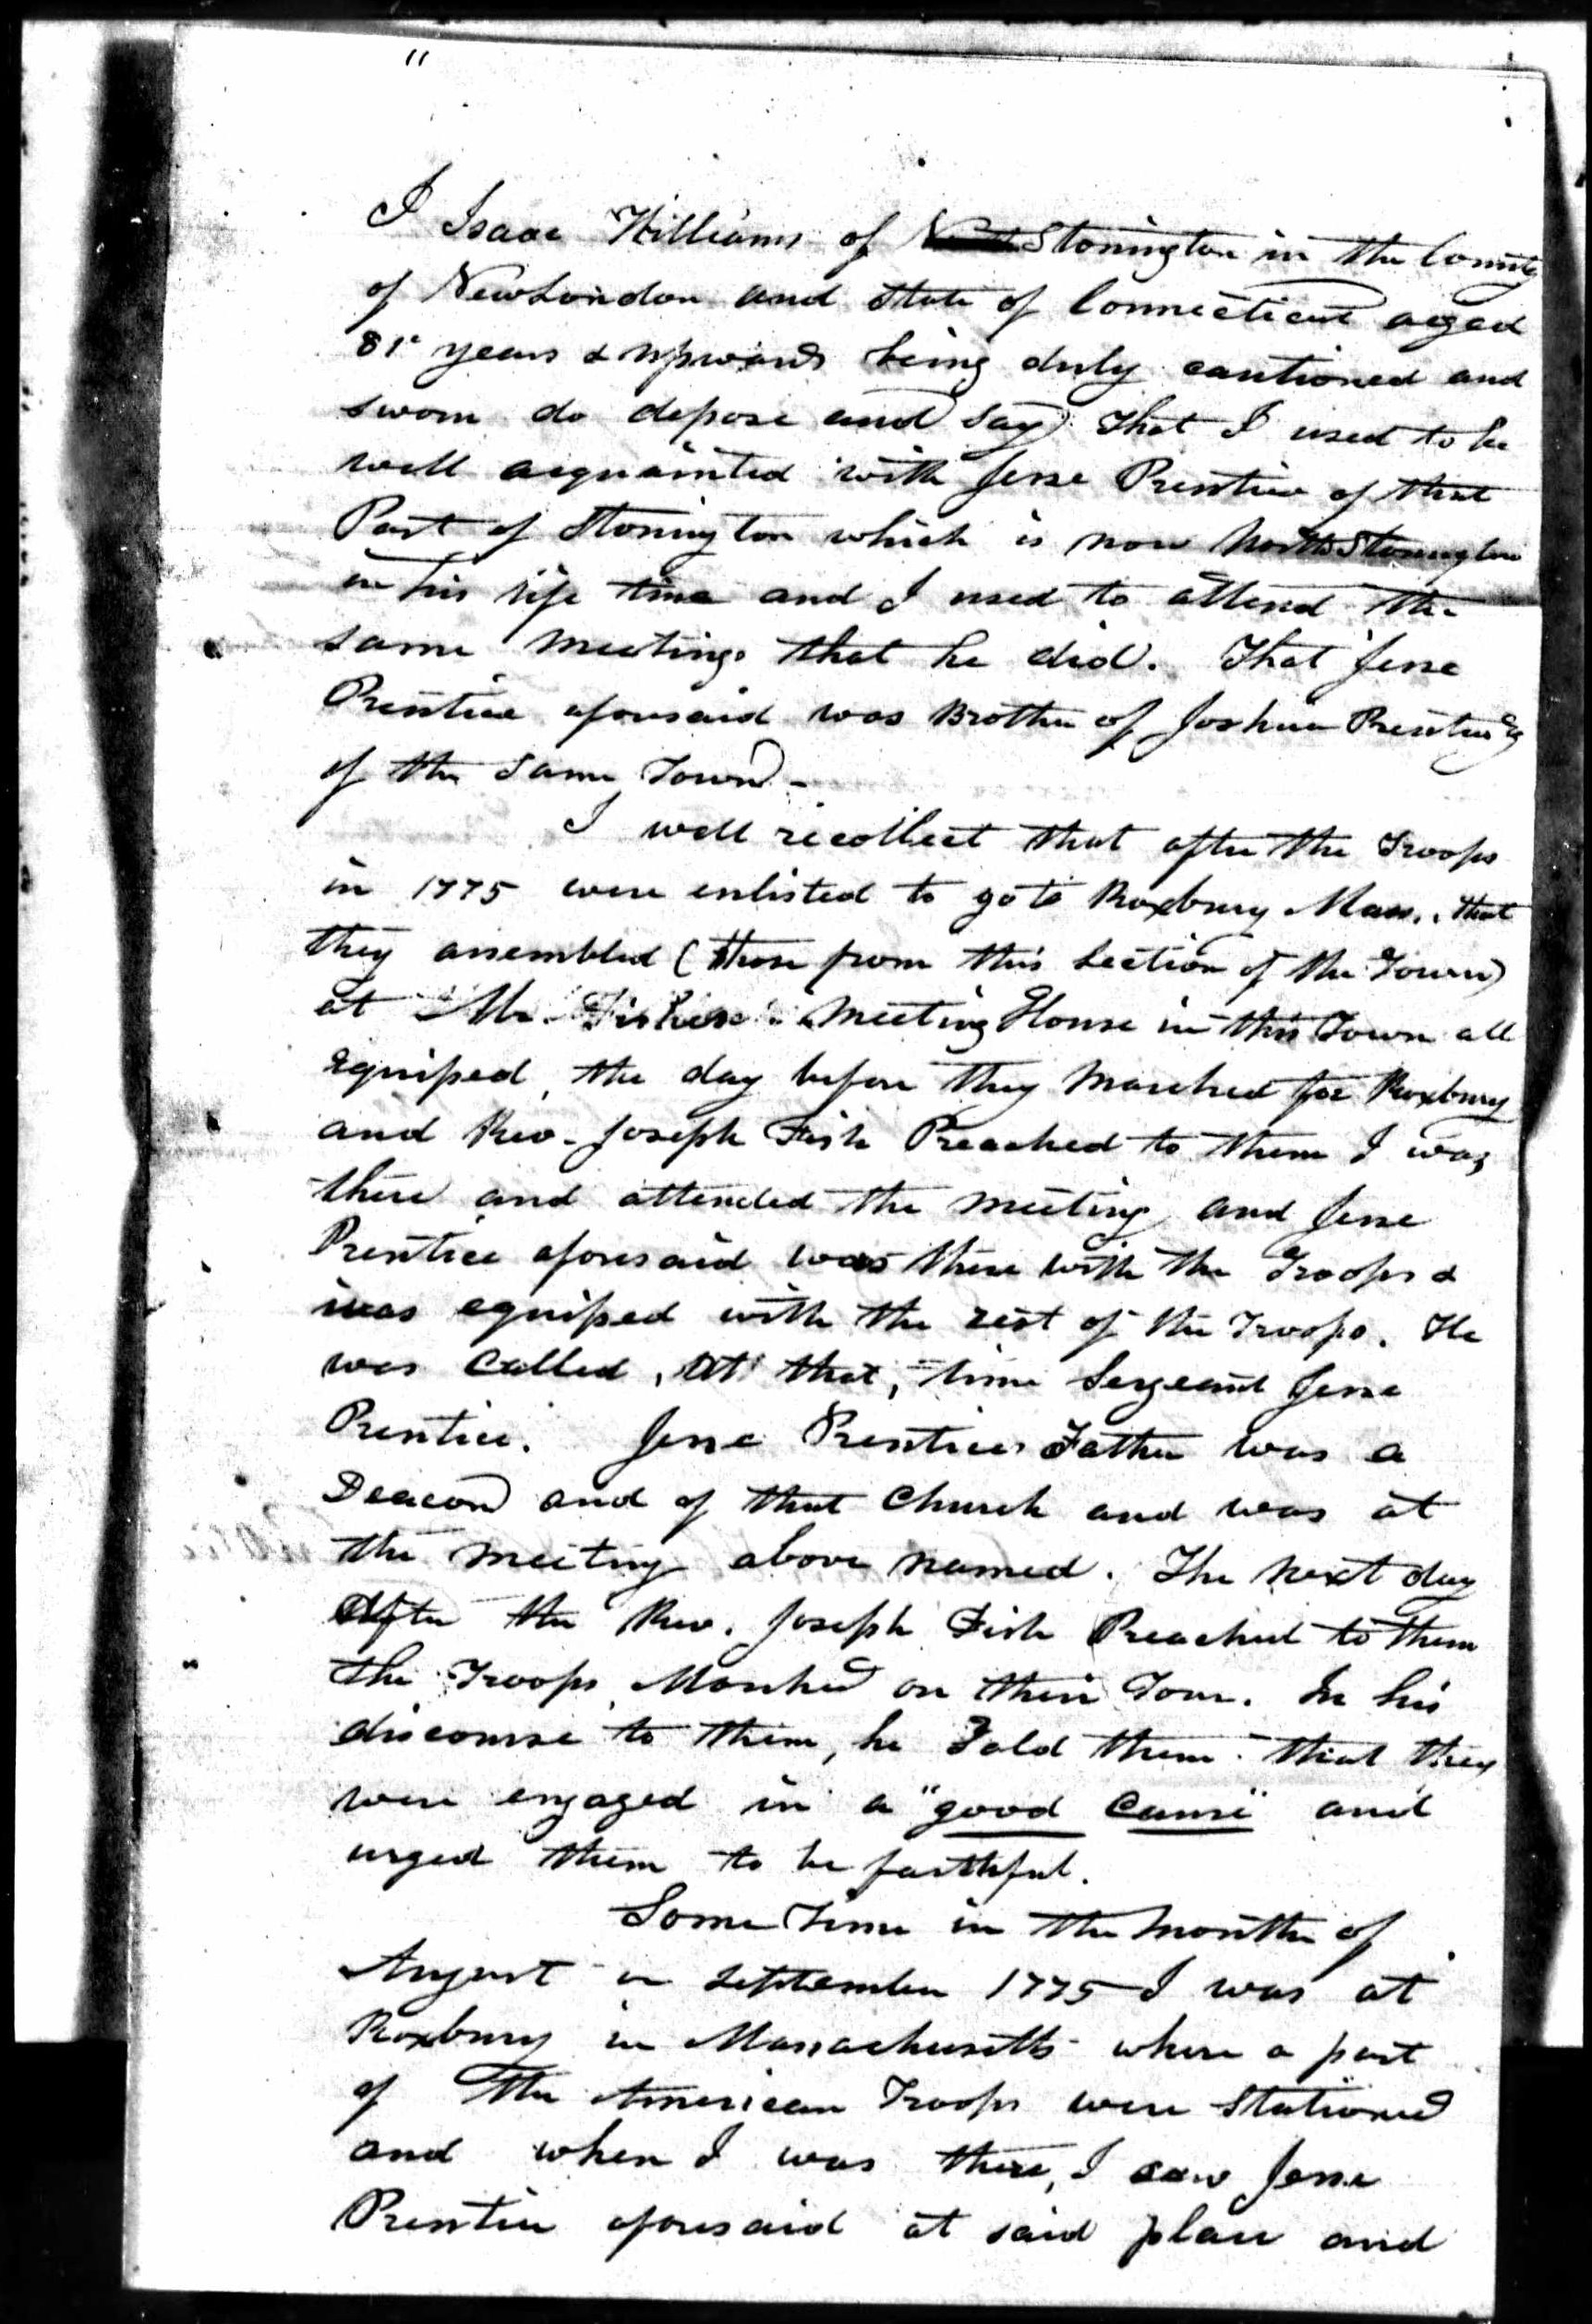 I Isaac Williams of Stonington in the County
of New London and State of Connecticut aged
81 years & upwards being duly cautioned and
sworn do depose and say That I used to be
well acquainted with Jesse Prentice of that
Part of Stonington which is now North Stonington
in his life time and I used to attend the
same meetings that he did. That Jesse
Prentice aforesaid was Brother of Joshua Prentice
of the same Town -
I well recollect that after the Troops
in 1775 were enlisted to go to Roxbury Mass., that
they assembled (those from this Section of the Town)
at Mr. meeting House in this Town all
equiped, the day before they Marched for Roxbury
and Rev. Joseph Fish Preached to them I was
there and attended the meeting and Jesse
Prentice aforesaid was there with the Troops &
was equiped with the rest of the Troops. He
was Called, At that, time Sergeant Jesse
Prentice. Jesse Prentices Father was a
Deacon and of that Church and was at
the meeting above named. The next day
After the Rev. Joseph Fish Preached to them
the Troops Marched on their Tour. In his
discourse to them, he Told them that they
were engaged in a "good cause" and
urged them to be faithful.
Some Time in the month of
August or September 1775 I was at
Roxbury in Massachusetts where a part
of The American Troops were Stationed
and when I was there, I saw Jesse
Prentice aforesaid at said place and